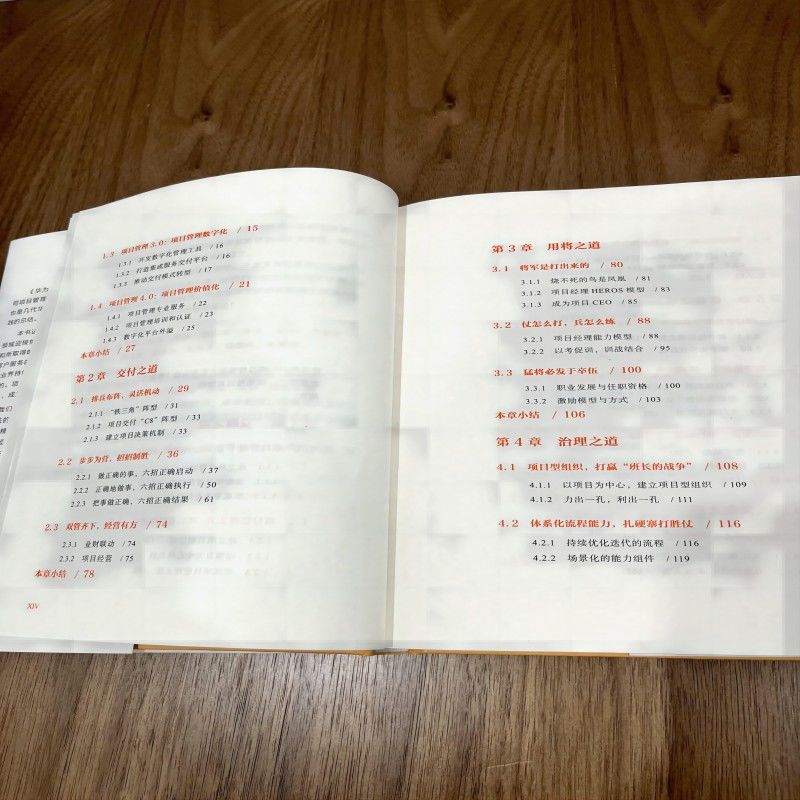 《华为
将项目管理
也是几代华
践的总结。
本书证
领域运接
和所取得的
客户服务
业界持
的、恐
，成
我们
性的
精
1.3 项目管理 3.0：项目管理数字化 / 15
1.3.1 开发数字化管理工具 / 16
1.3.2 打造集成服务交付平台 / 16
1.3.3 推动交付模式转型 / 17
1.4 项目管理 4.0：项目管理价值化 / 21
1.4.1 项目管理专业服务 / 22
1.4.2 项目管理培训和认证 / 23
1.4.3 数字化平台外溢 / 25
本章小结 / 27
第 2 章 交付之道
2.1 排兵布阵，灵活机动 / 29
2.1.1 “铁三角”阵型 / 31
2.1.2 项目交付“C8”阵型 / 33
2.1.3 建立项目决策机制 / 33
2.2 步步为营，招招制胜 / 36
2.2.1 做正确的事，六招正确启动 / 37
2.2.2 正确地做事，六招正确执行 / 50
2.2.3 把事做正确，六招正确结果 / 61
2.3 双管齐下，经营有方 / 74
2.3.1 业财联动 / 74
2.3.2 项目经营 / 75
本章小结 / 78
XIV
第 3 章 用将之道
3.1 将军是打出来的 / 80
3.1.1 烧不死的鸟是凤凰 / 81
3.1.2 项目经理 HEROS 模型 / 83
3.1.3 成为项目 CEO / 85
3.2 仗怎么打，兵怎么练 / 88
3.2.1 项目经理能力模型 / 88
3.2.2 以考促训，训战结合 / 95
3.3 猛将必发于卒伍 / 100
3.3.1 职业发展与任职资格 / 100
3.3.2 激励模型与方式 / 103
本章小结 / 106
第 4 章 治理之道
4.1 项目型组织，打赢“班长的战争” / 108
4.1.1 以项目为中心，建立项目型组织 / 109
4.1.2 力出一孔，利出一孔 / 111
4.2 体系化流程能力，扎硬寨打胜仗 / 116
4.2.1 持续优化迭代的流程 / 116
4.2.2 场景化的能力组件 / 119